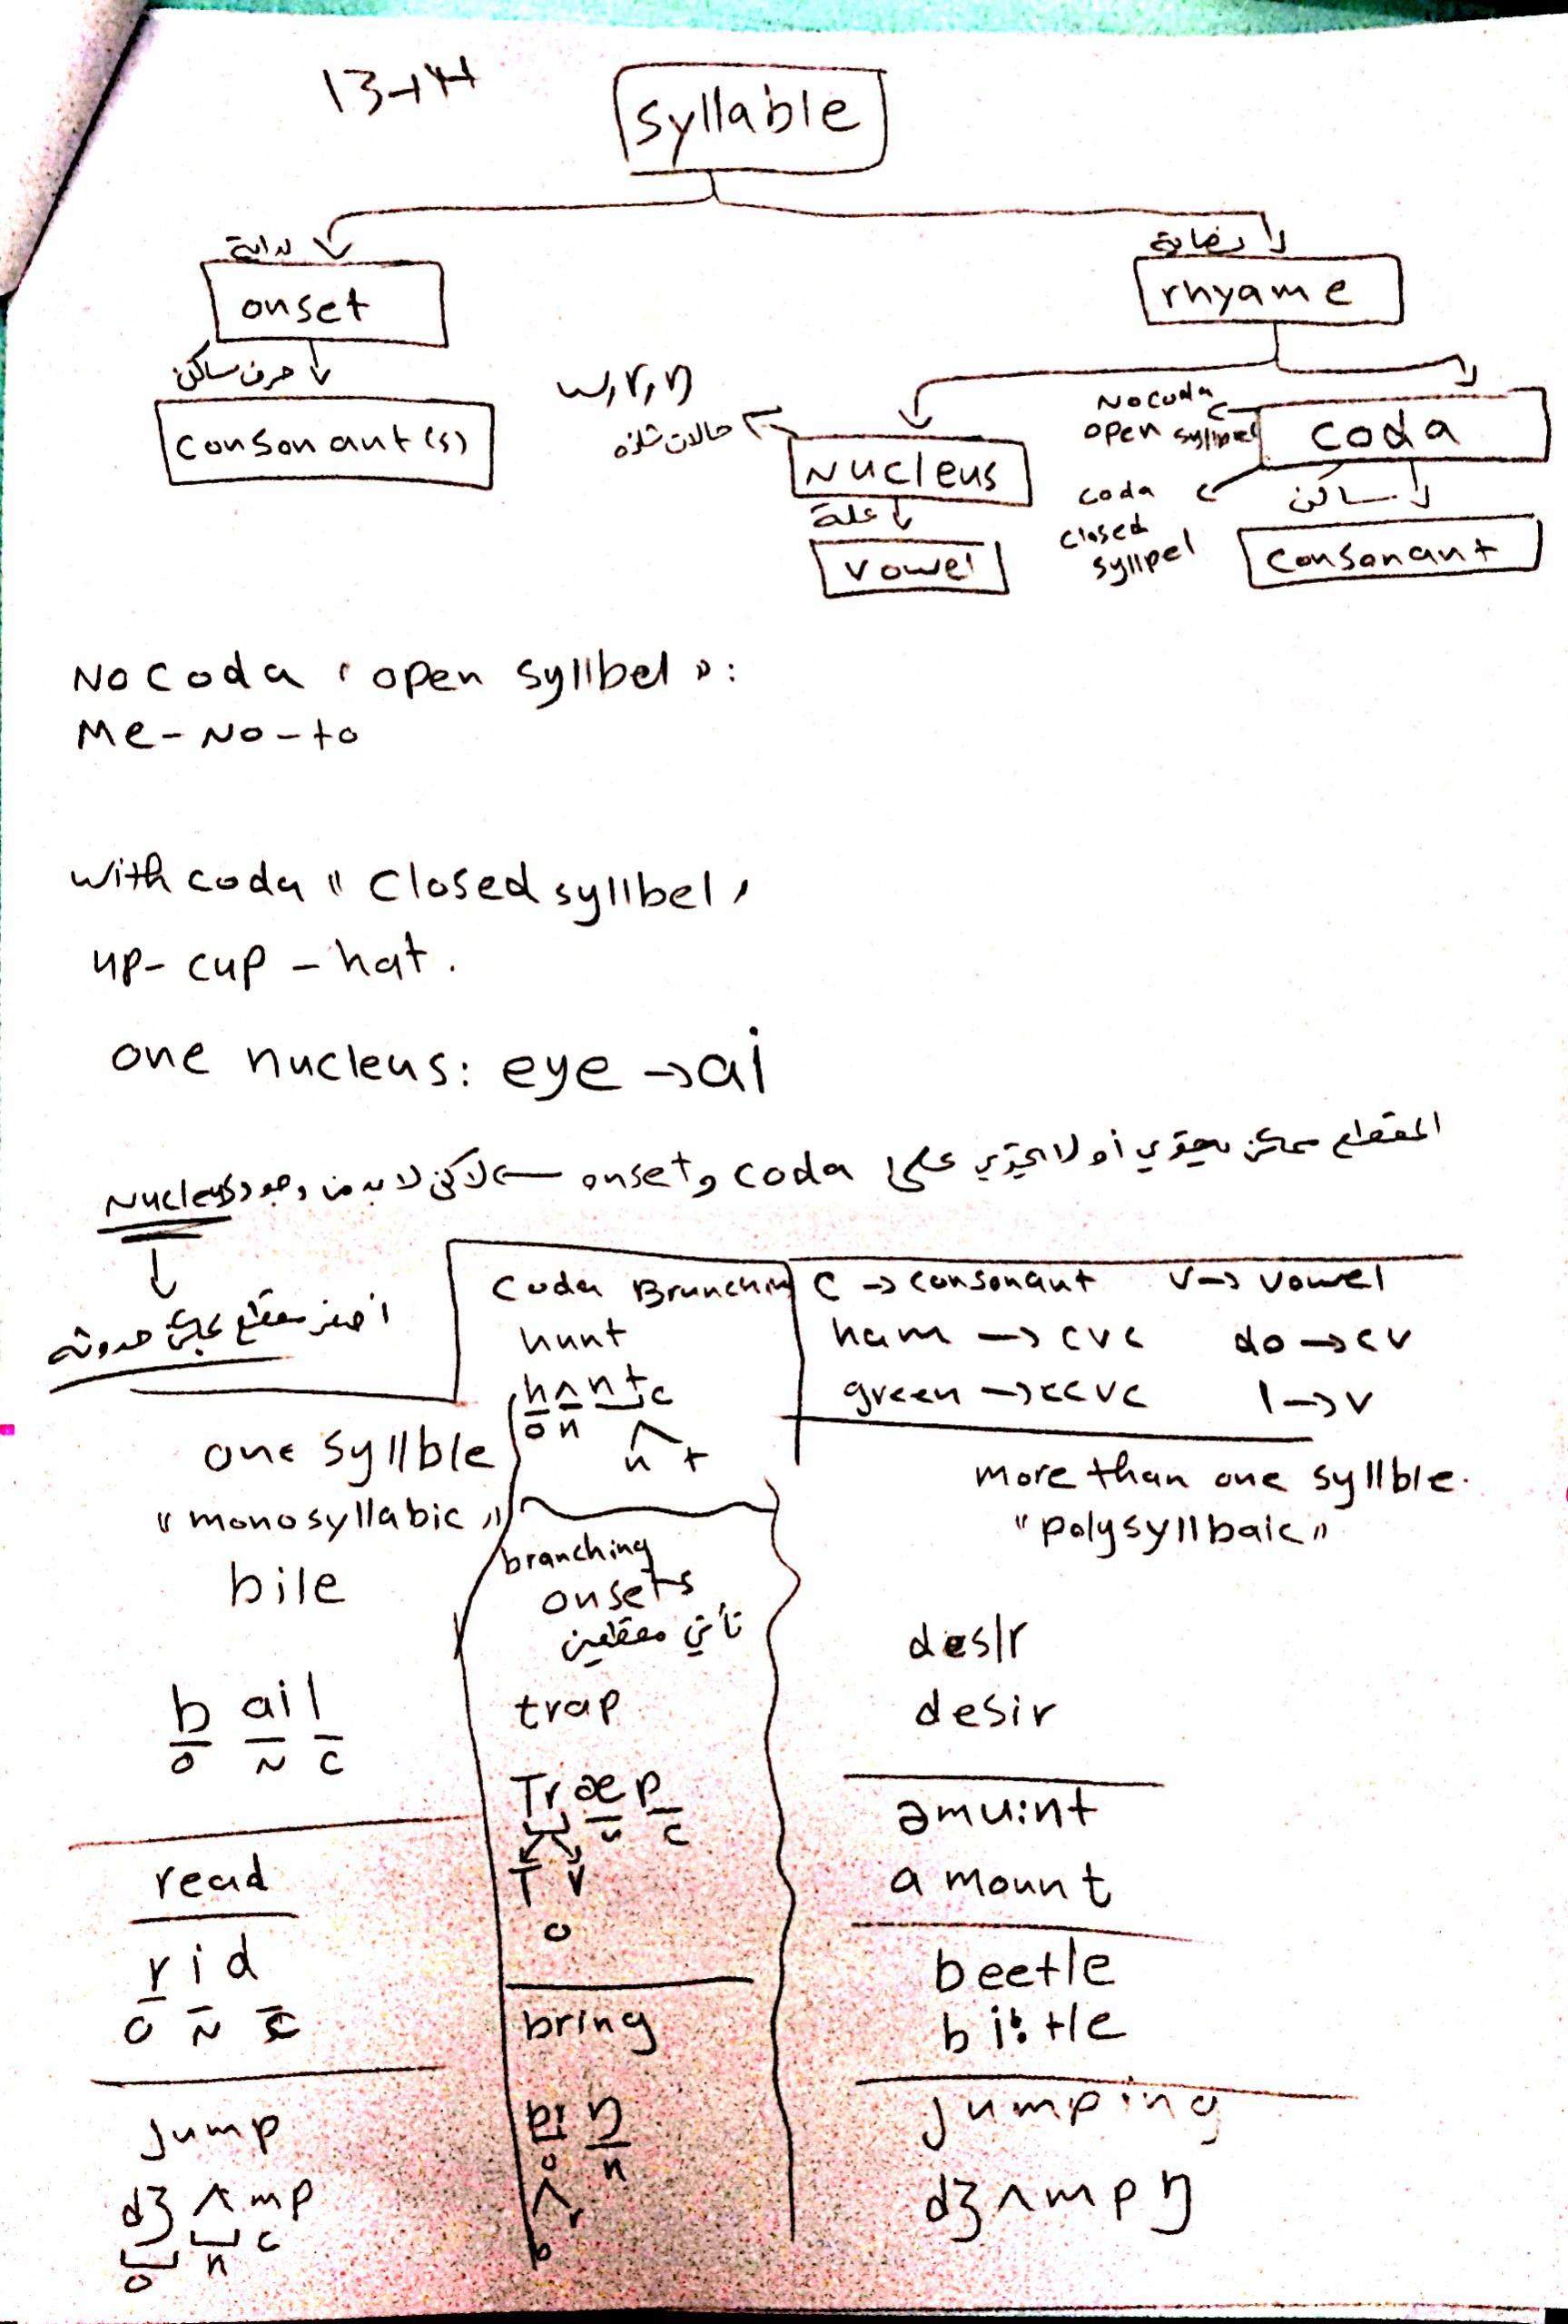 13-14
syllable
بداية
نهاية
onset
rhyame
حرف ساكن
consonant(s)
w, r, ŋ
حالات شاذه
Nucleus
علة
vowel
No coda
open syllpel
coda
coda
closed
syllpel
ساكن
consonant
No coda " open syllbel ":
Me - No - to
with coda " Closed syllbel "
up - cup - hat .
one nucleus: eye → ai
المقطع ممكن يحتوي أو لا يحتوي على coda و onset ← لاكن لا بد من وجود Nucleus
اصغر مقطع يمكن حدوثه
Coda Branching
hunt
hʌnt c
o n
n t
C → consonant V → vowel
ham → cvc do → cv
green → ccvc I → v
one syllble
"monosyllabic"
bile
b ai l
o N c
read
r i d
o N c
Jump
dʒ ʌ mp
o n c
branching
onsets
تأتي مقطعين
trap
Tr æ p
n c
T r
o
bring
ŋ
o n
r
b
more than one syllble.
"polysyllbaic"
desIr
desir
əmu:nt
amount
beetle
bi:tle
Jumping
dʒʌmpŋ